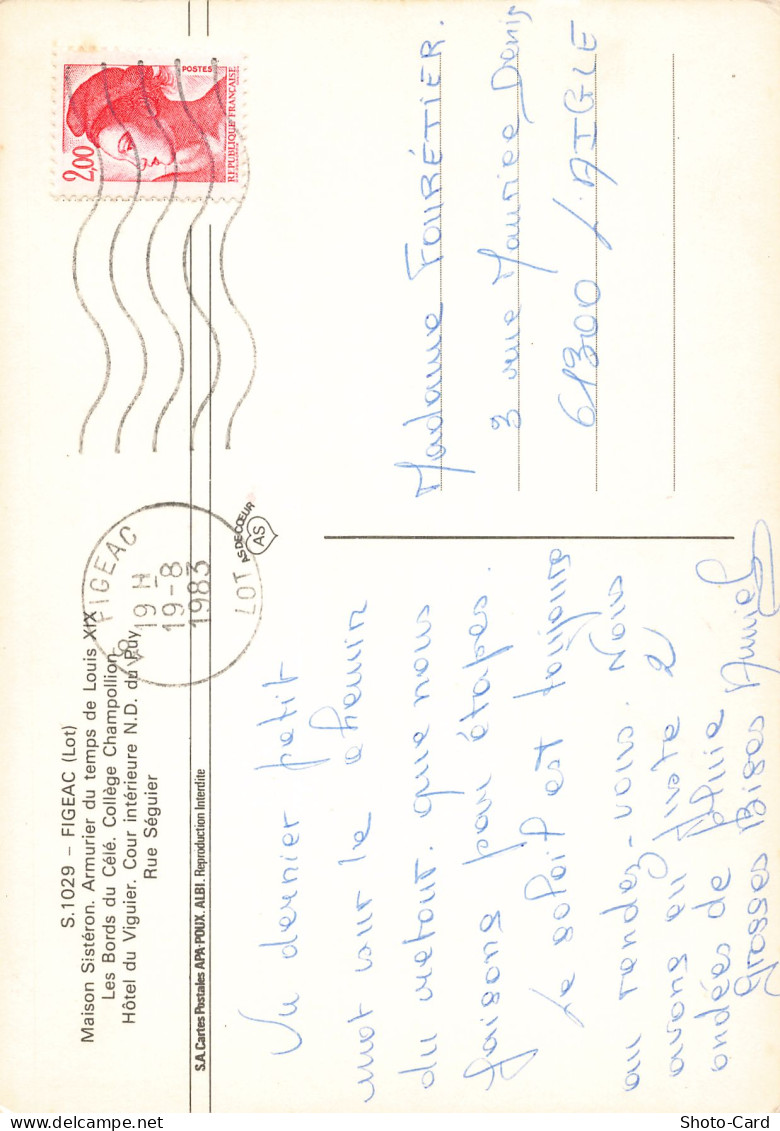 S.1029 – FIGEAC (Lot)
Maison Sistéron. Armurier du temps de Louis XIX
Les Bords du Célé. Collège Champollion
Hôtel du Viguier. Cour intérieure N.D. du Puy
Rue Séguier
S.A. Cartes Postales APA-POUX. ALBI. Reproduction Interdite
AS DE CŒUR
AS
FIGEAC
19 H
19-8
1983
LOT
2,00
POSTES
REPUBLIQUE FRANÇAISE
Un dernier petit
mot sur le chemin
du retour. que nous
faisons par étapes.
Le soleil est toujours
au rendez-vous. Nous
avons eu juste 2
ondées de pluie
Grosses Bises
Madame FOURÉTIER.
3 rue Maurice Denis
61300 L'AIGLE
Shoto-Card